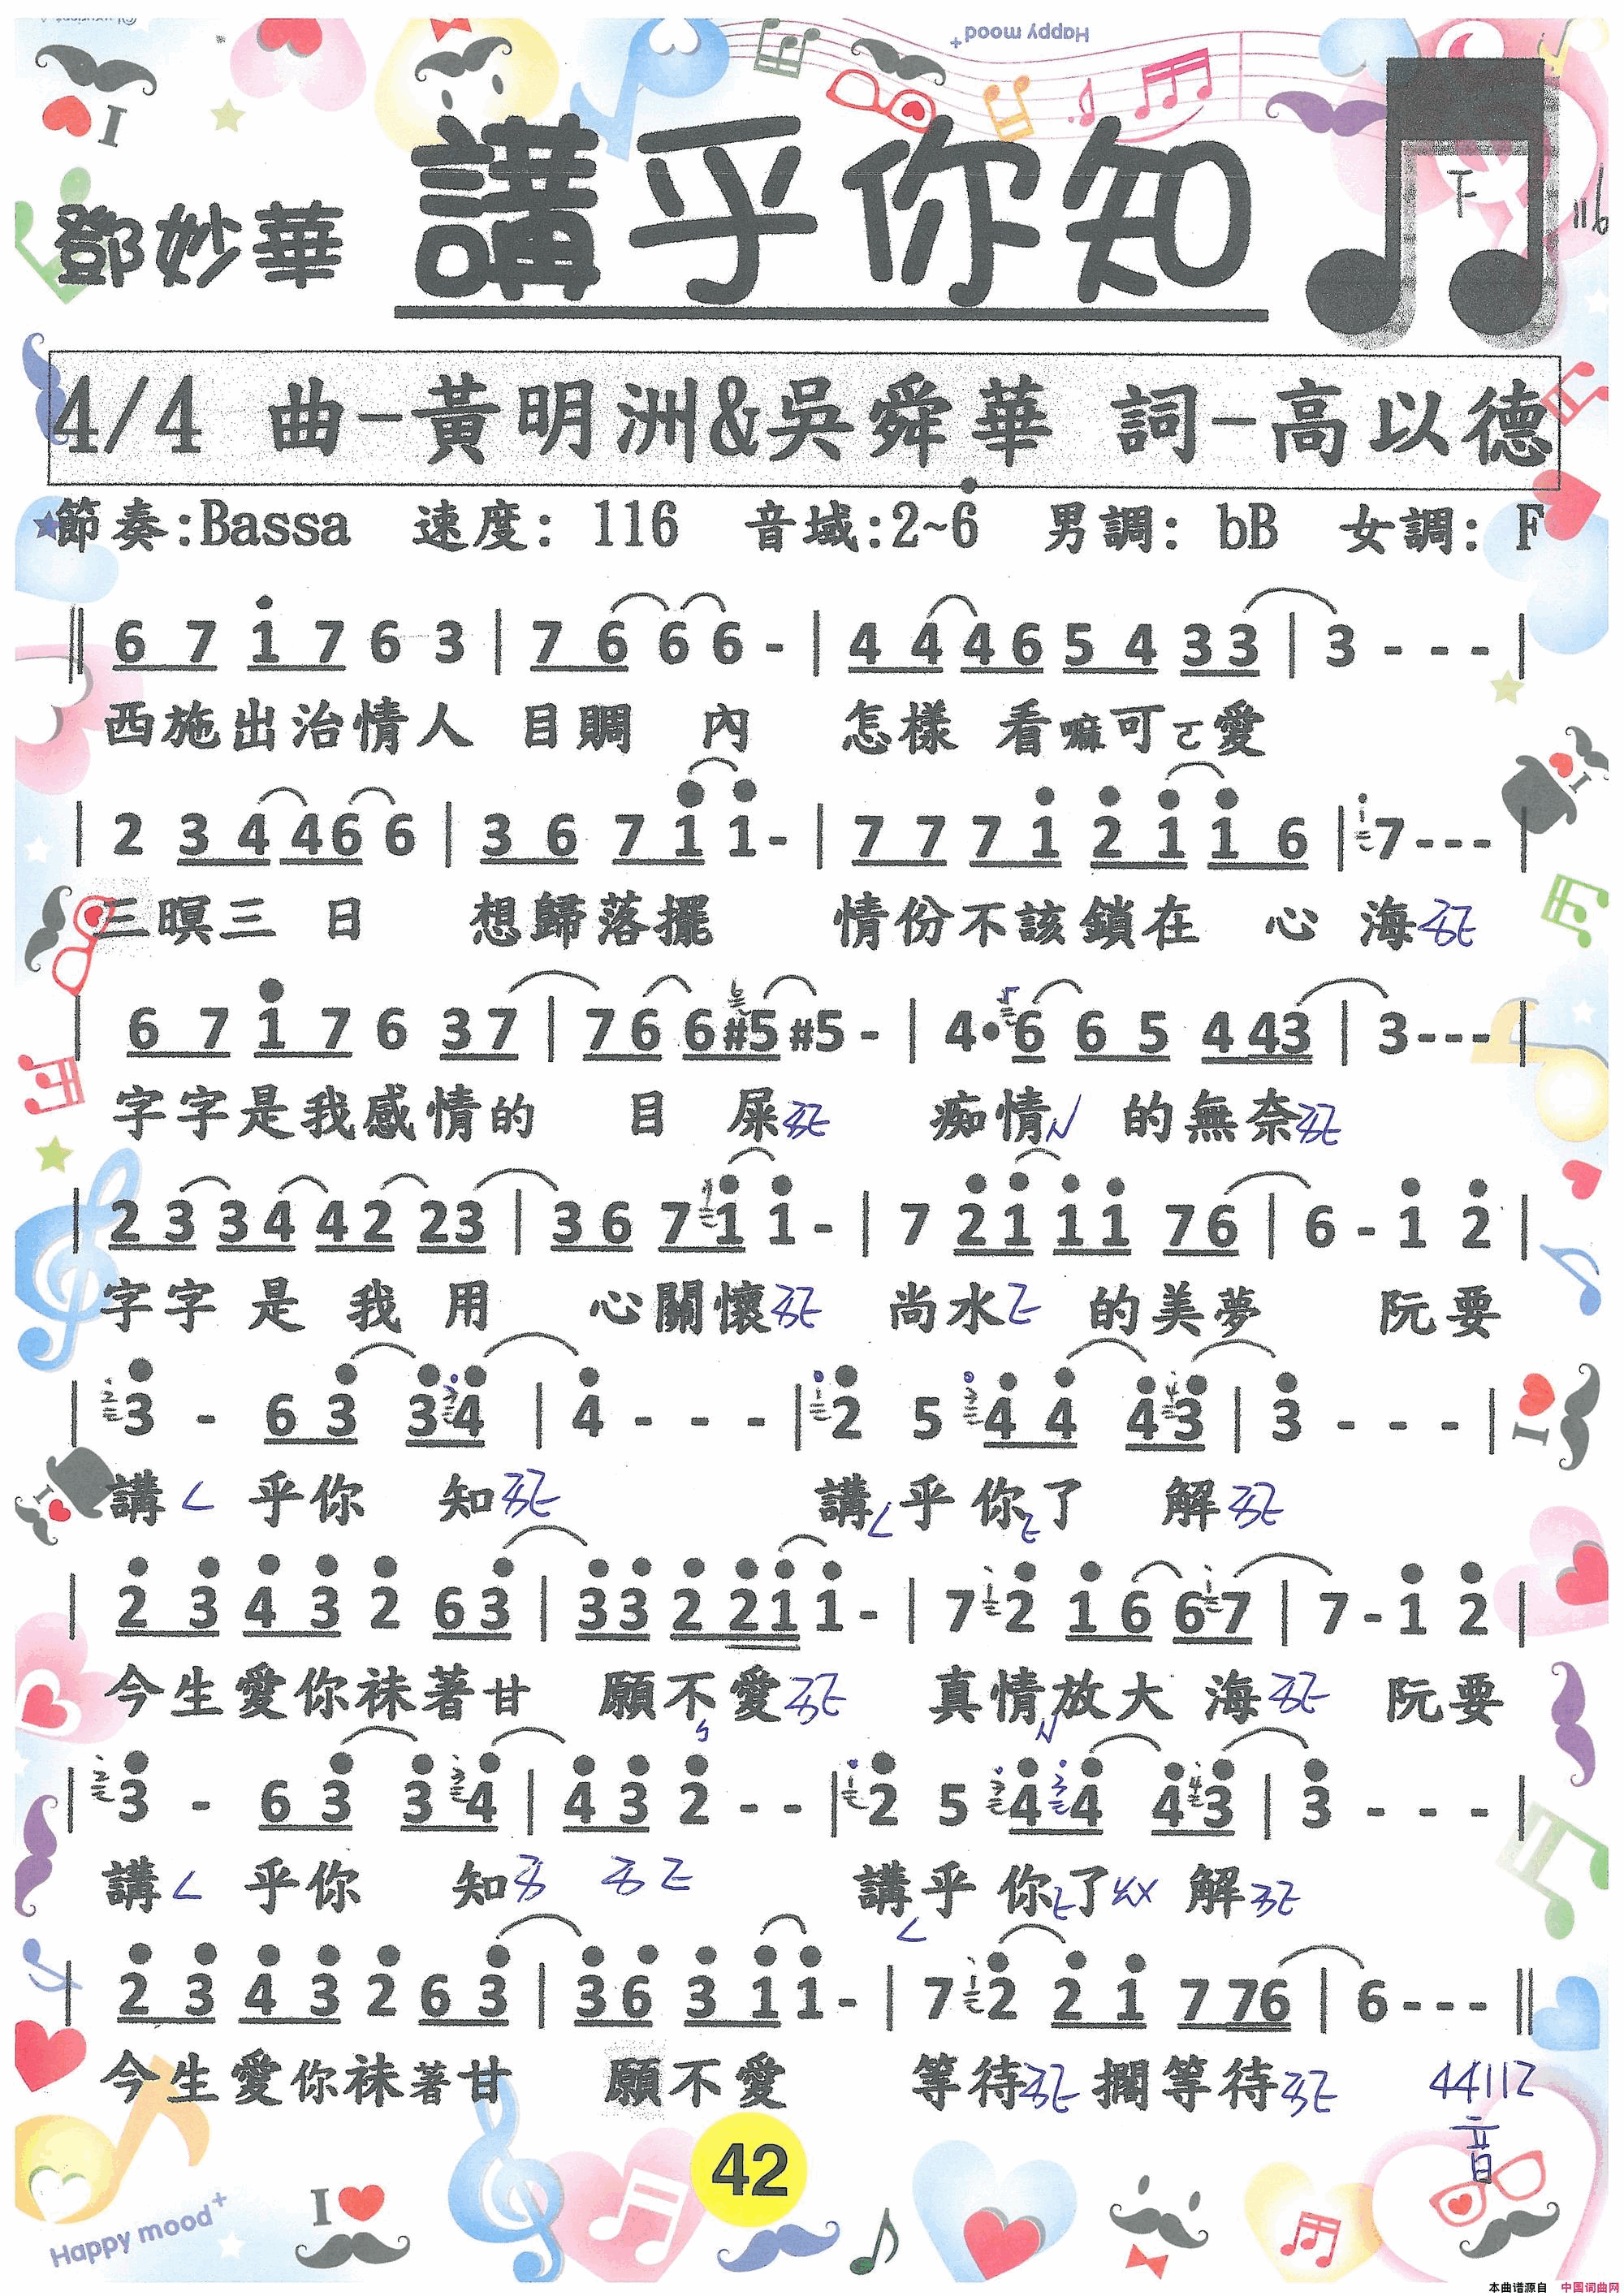 Happy mood+
I
講乎你知
鄧妙華
下
116
4/4 曲-黃明洲&吳舜華 詞-高以德
節奏:Bassa 速度: 116 音域:2~6̇ 男調: bB 女調: F
‖ 6 7 1̇ 7 6 3 | 7 6 6 6 - | 4 4 4 6 5 4 3 3 | 3 - - - |
西施出治情人 目睭 內 怎樣 看嘛可ㄛ愛
| 2 3 4 4 6 6 | 3 6 7 1̇ 1̇ - | 7 7 7 1̇ 2̇ 1̇ 1̇ 6 | 7 - - - |
三暝三 日 想歸落擺 情份不該鎖在 心 海
| 6 7 1̇ 7 6 3 7 | 7 6 6 #5 #5 - | 4 • 6 6 5 4 4 3 | 3 - - - |
字字是我感情的 目 屎 痴情 的無奈
| 2 3 3 4 4 2 2 3 | 3 6 7 1̇ 1̇ - | 7 2̇ 1̇ 1̇ 1̇ 7 6 | 6 - 1̇ 2̇ |
字字 是 我 用 心關懷 尚水 的美夢 阮要
| 3̇ - 6 3̇ 3̇ 4̇ | 4̇ - - - | 2̇ 5 4̇ 4̇ 4̇ 3̇ | 3̇ - - - |
講 乎你 知 講 乎 你了 解
| 2̇ 3̇ 4̇ 3̇ 2̇ 6 3̇ | 3̇ 3̇ 2̇ 2̇ 1̇ 1̇ - | 7 2̇ 1̇ 6 6 7 | 7 - 1̇ 2̇ |
今生愛你袜著甘 願不愛 真情放大 海 阮要
| 3̇ - 6 3̇ 3̇ 4̇ | 4̇ 3̇ 2̇ - - | 2̇ 5 4̇ 4̇ 4̇ 3̇ | 3̇ - - - |
講 乎你 知 講乎 你了 解
| 2̇ 3̇ 4̇ 3̇ 2̇ 6 3̇ | 3̇ 6 3̇ 1̇ 1̇ - | 7 2̇ 2̇ 1̇ 7 7 6 | 6 - - - ‖
今生愛你袜著甘 願不愛 等待 擱等待
44112
音
42
Happy mood+
I
本曲谱源自 中国词曲网